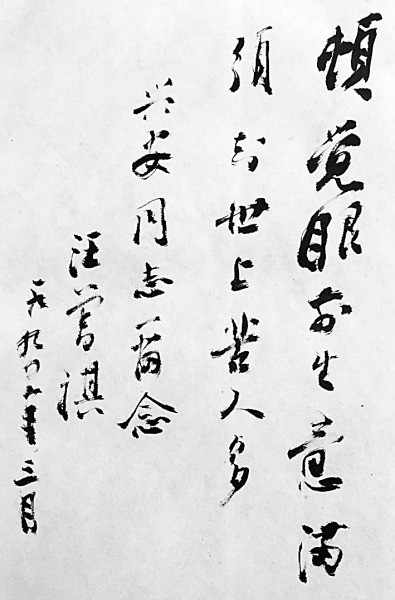 顿觉眼前生意满
须知世上苦人多
兴安同志留念
汪曾祺
一九九年三月